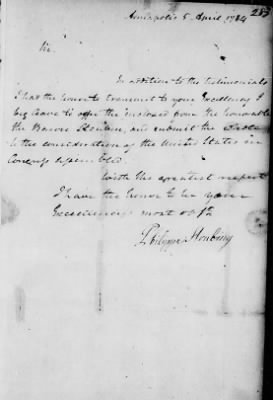 283
Annapolis 5 April 1784
Sir,
In addition to the testimonials
I had the honor to transmit to your Excellency I
beg leave to offer the enclosed from the honorable
the Baron Steuben, and submit the
to the consideration of the United States in
Congress assembled.
With the greatest respect
I have the honor to be your
Excellency's most obt